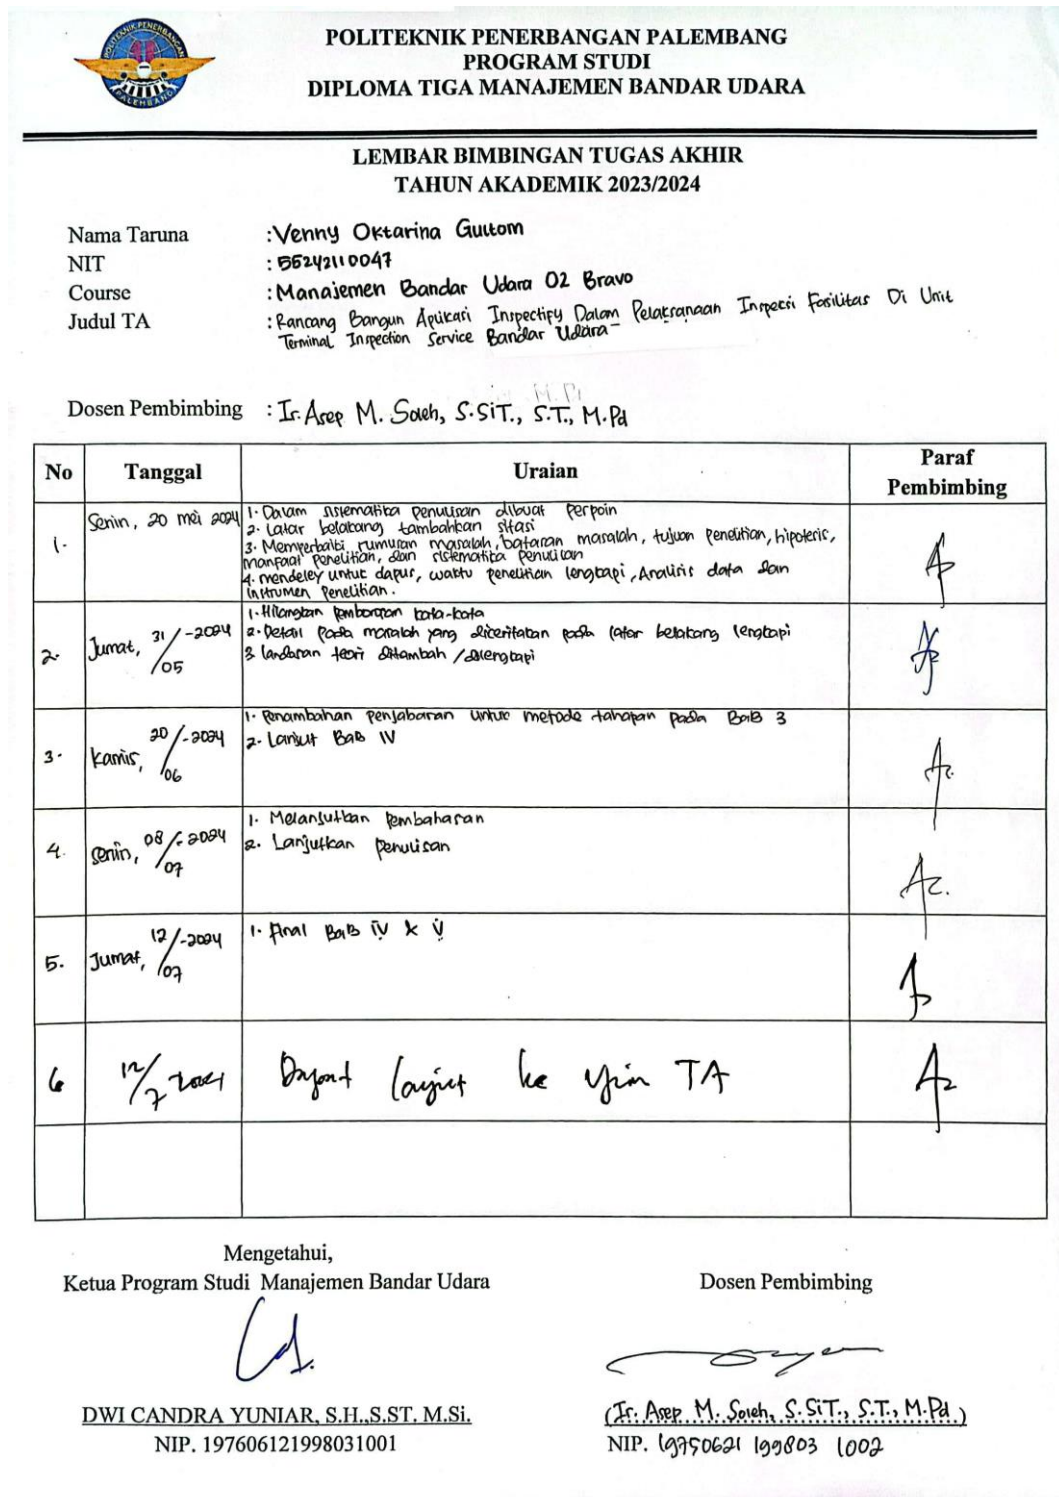 POLITEKNIK PENERBANGAN PALEMBANG
POLITEKNIK PENERBANGAN PALEMBANG
PROGRAM STUDI
DIPLOMA TIGA MANAJEMEN BANDAR UDARA
LEMBAR BIMBINGAN TUGAS AKHIR
TAHUN AKADEMIK 2023/2024
Nama Taruna : Venny Oktarina Gultom
NIT : 56242110047
Course : Manajemen Bandar Udara 02 Bravo
Judul TA : Rancang Bangun Aplikasi Inspectify Dalam Pelaksanaan Inspeksi Fasilitas Di Unit
Terminal Inspection Service Bandar Udara
Dosen Pembimbing : Ir. Asep M. Soleh, S.SiT., S.T., M.Pd
No Tanggal Uraian Paraf Pembimbing
1. Senin, 20 mei 2024 1. Dalam sistematika penulisan dibuat perpoin
2. Latar belakang tambahkan sitasi
3. Memperbaiki rumusan masalah, batasan masalah, tujuan penelitian, hipotesis,
manfaat penelitian, dan sistematika penulisan
4. mendeley untuk dapus, waktu penelitian lengkapi, Analisis data dan
instrumen penelitian.
2. Jumat, 31/05-2024 1. Hilangkan pemborosan kata-kata
2. Detail pada masalah yang diceritakan pada latar belakang lengkapi
3 landasan teori ditambah / dilengkapi
3. Kamis, 20/06-2024 1. Penambahan penjabaran untuk metode tahapan pada BAB 3
2. Lanjut BAB IV
4. Senin, 08/07-2024 1. Melanjutkan pembahasan
2. Lanjutkan penulisan
5. Jumat, 12/07-2024 1. Final BAB IV & V
6 12/7 2024 Dapat lanjut ke ujian TA
Mengetahui,
Ketua Program Studi Manajemen Bandar Udara
Dosen Pembimbing
DWI CANDRA YUNIAR, S.H.,S.ST. M.Si.
NIP. 197606121998031001
(Ir. Asep M. Soleh, S.SiT., S.T., M.Pd.)
NIP. 19750621 199803 1002